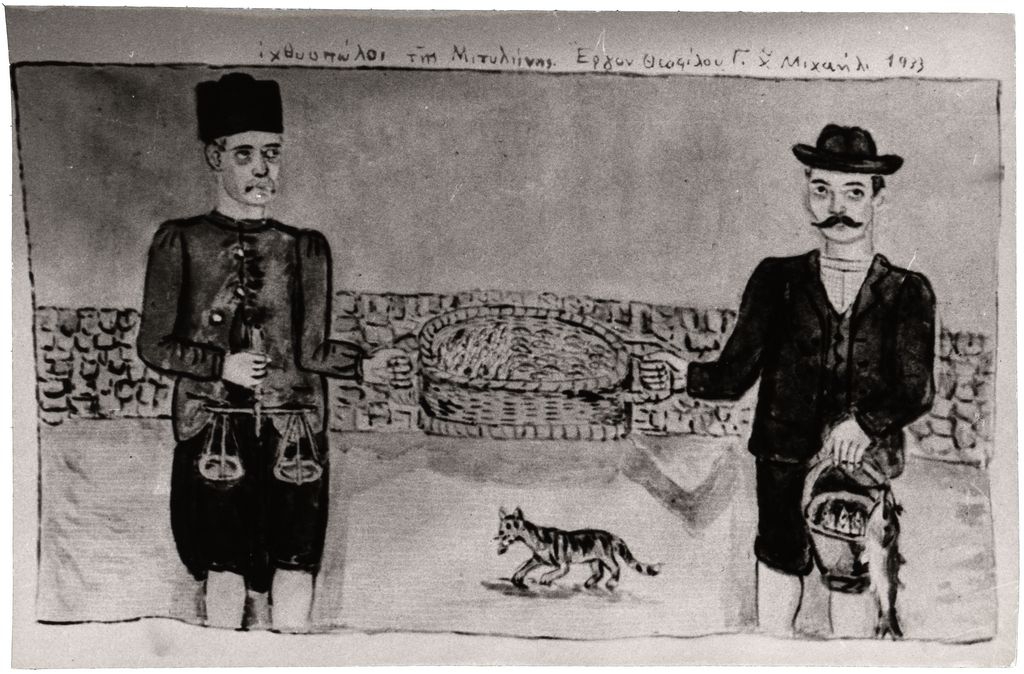 ἰχθυοπώλοι τῆς Μιτυλήνης. Ἔργον Θεοφίλου Γ. Χ Μιχαήλ 1933